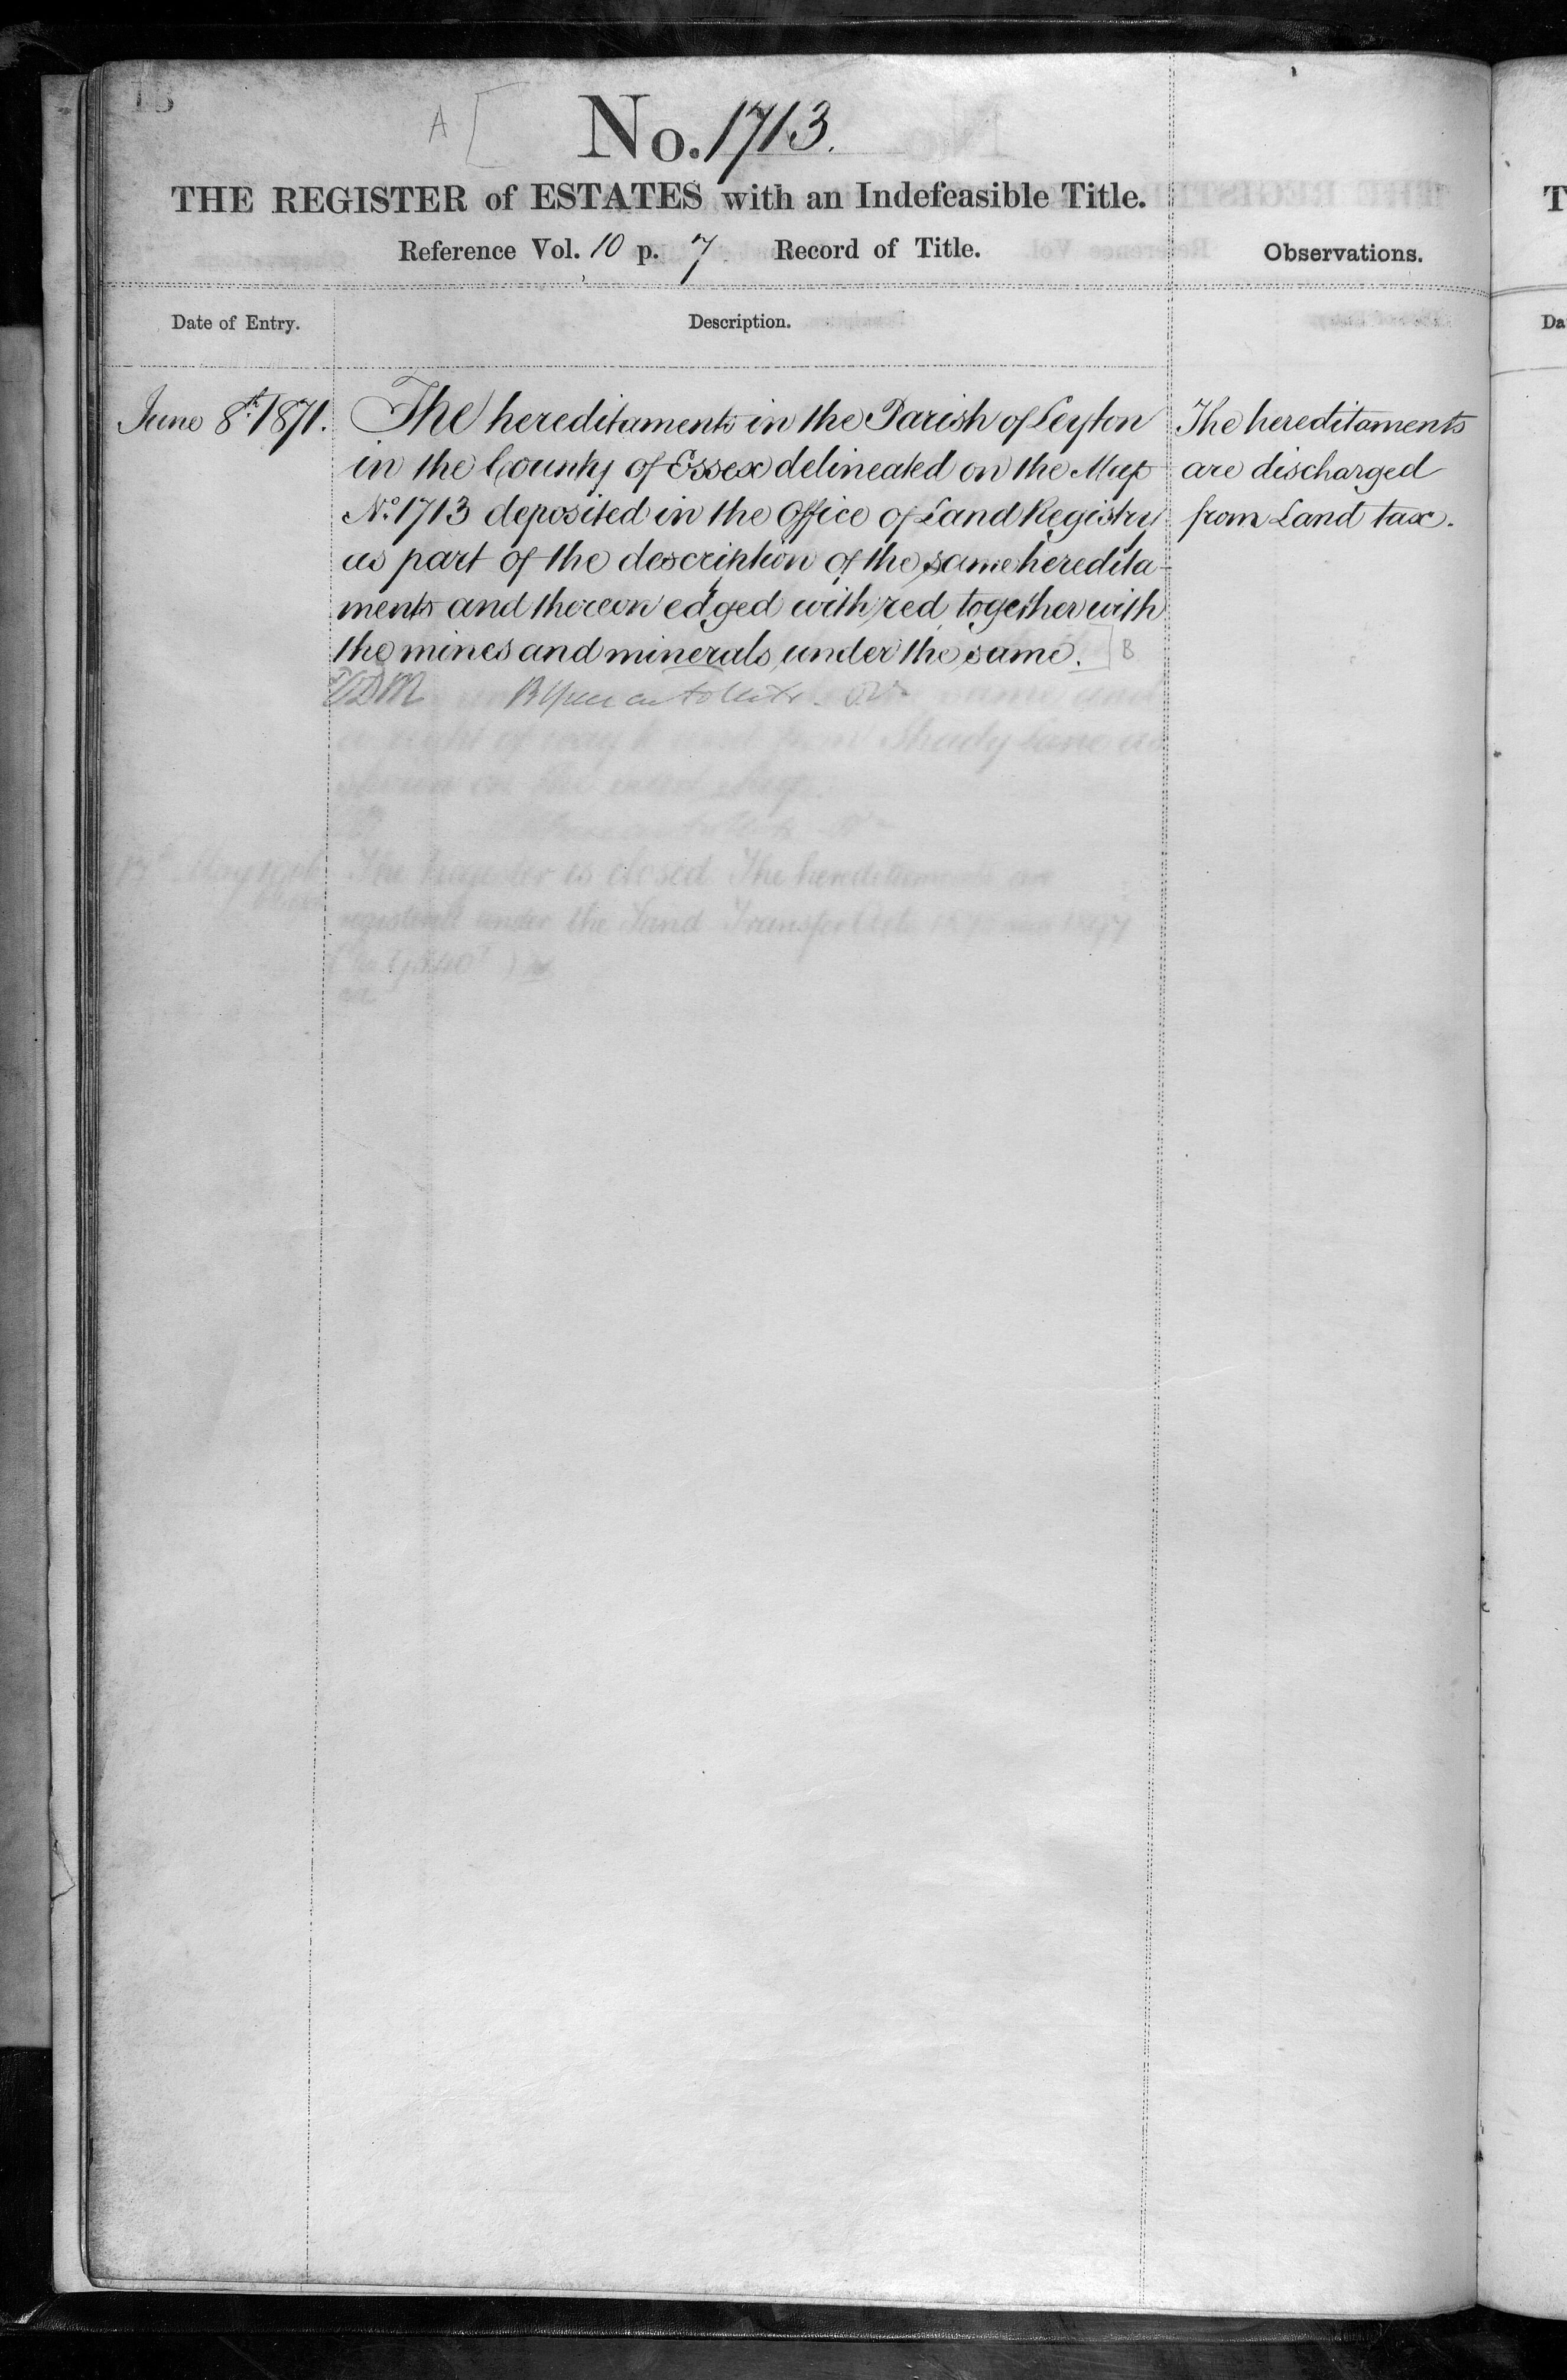 A [
No. 1713.
THE REGISTER of ESTATES with an Indefeasible Title.
Reference Vol. 10 p. 7 Record of Title.
Observations.
Date of Entry.
Description.
June 8th 1871.
The hereditaments in the Parish of Leyton
in the County of Essex delineated on the Map
No. 1713 deposited in the Office of Land Registry
as part of the description of the same heredita-
ments and thereon edged with red, together with
the mines and minerals under the same. ] B
The hereditaments
are discharged
from Land tax.
a right of way to and from Shady lane as
shown on the
The Register is closed The hereditaments are
registered under the Land Transfer Acts
T
Da